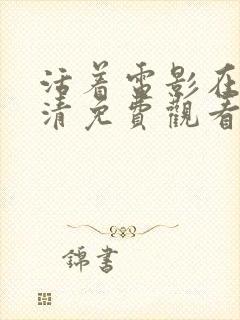 活着雷影在
清免費觀看
錦書